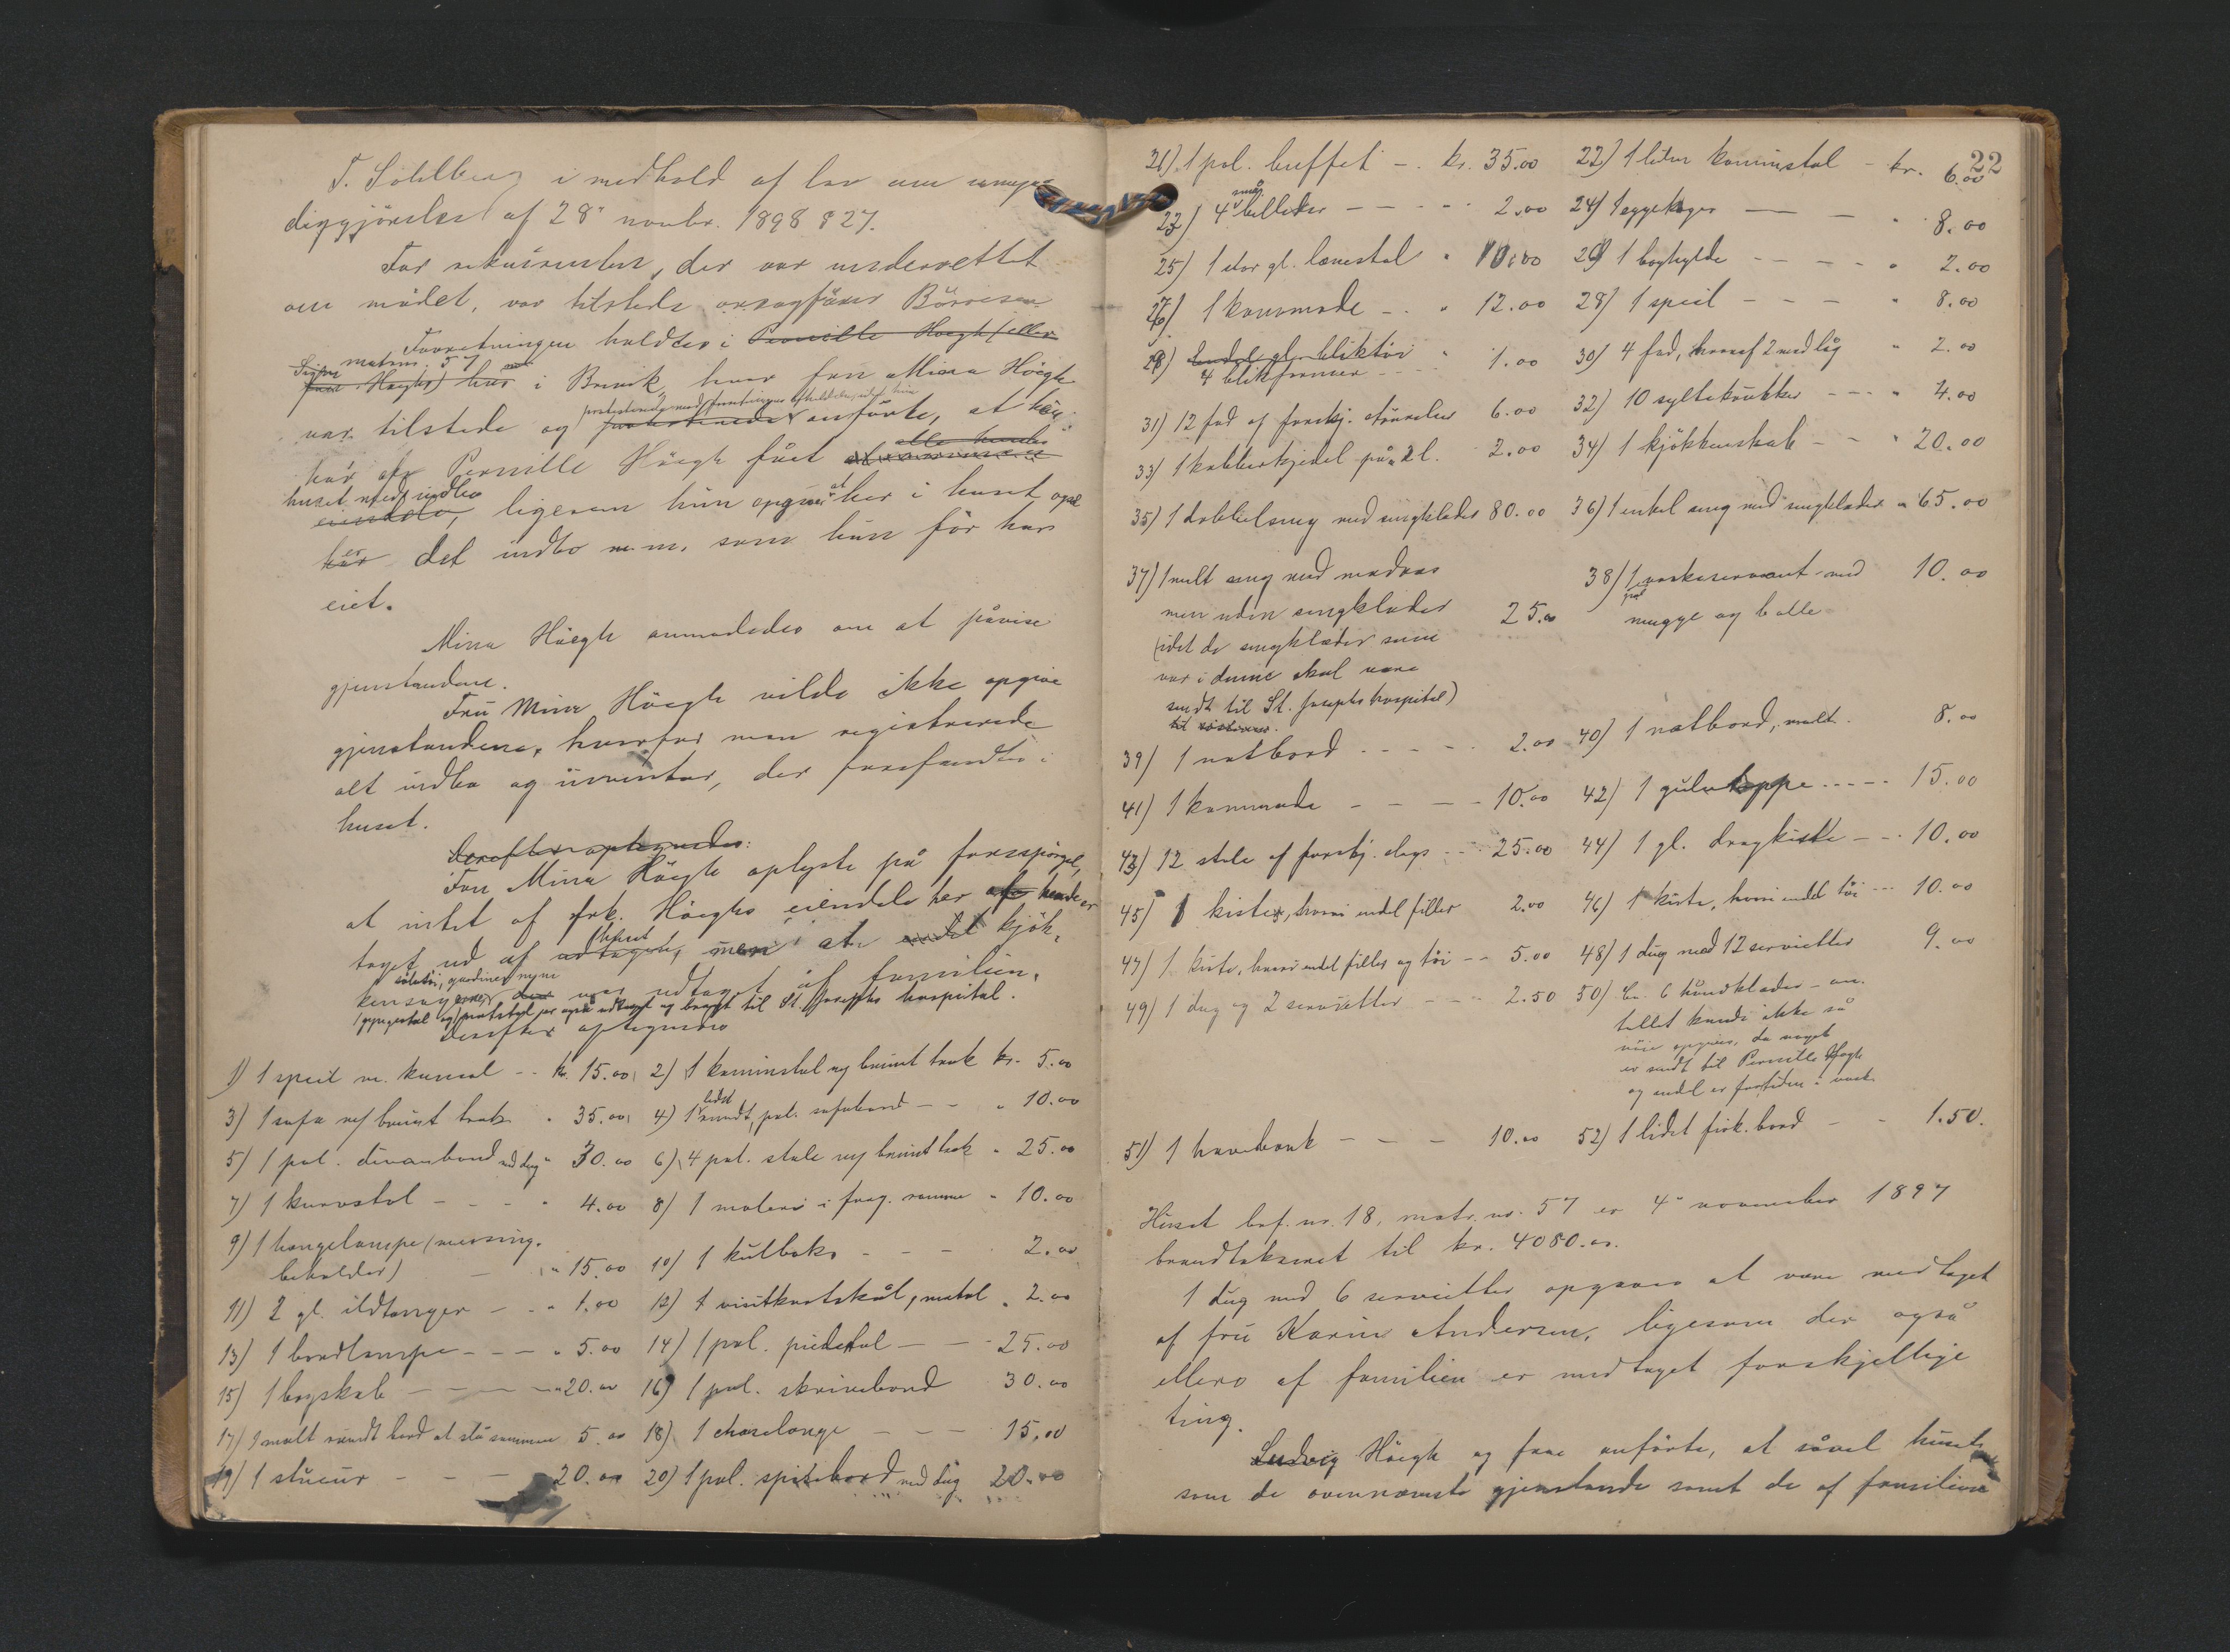 T. Sohlberg i medhold af lov om umyn-
diggjörelse af 28de novbr. 1898 § 27.
For rekvirenten, der var underrettet
om mödet, var tilstede orsagförer Börresen
Forretningen holdtes i Pernille Höegh (eller
matrnr. 57
Höeghs) hus i Brevik, hvor fru Mina Höegh
protesterede mod forretningens afholdelse, idet hun
var tilstede og protesterede anförte, at hun
alle hendes
har af Pernille Höegh fået
huset med indbo
eiendele, ligesom hun opgav at her i huset også
er
har det indbo m.m. som hun för har
eiet.
Mina Höegh anmodedes om at påvise
gjenstandene.
Fru Mina Höegh vilde ikke opgive
gjenstandene, hvorfor man registrerede
alt indbo og inventar, der forefandtes i
huset.
Derefter optegnedes:
Fru Mina Höegh oplyste på forespörgsel,
at intet af frk. Höeghs eiendele her af hende er
huset
taget ud af udtaget, men at endel kjök-
sölvtöi, gardiner m.m.
kensager, der var udtaget af familien.
(gyngestol og) natstol er også udtaget og bragt til St. Josephs hospital.
Derefter optegnedes
1) 1 speil m. konsol -- kr. 15.00 2) 1 kaminstol m/ brunt træk kr. 5.00
3) 1 sofa m/ brunt træk " 35.00 4) 1 lidet rundt, pol. sofabord - - " 10.00
5) 1 pol. divanbord med dug " 30.00 6) 4 pol. stole m/ brunt træk " 25.00
7) 1 kurvstol - - - " 4.00 8) 1 maleri i forg. ramme " 10.00
9) 1 hængelampe (messing-
beholder) - " 15.00 10) 1 kulboks - - - 2.00
11) 2 gl. ildtænger - - " 1.00 12) 1 visitkortskål, metal " 2.00
13) 1 bordlampe - - - " 5.00 14) 1 pol. piedestal - - - 25.00
15) 1 bogskab - - - - " 20.00 16) 1 pol. skrivebord 30.00
17) 1 malt rundt bord at slå sammen 5.00 18) 1 chaselonge - - - 15.00
19) 1 stueur - - - 20.00 20) 1 pol. spisebord med dug 20.00
22
21) 1 pol. buffet - . kr. 35.00 22) 1 liden kaminstol - kr. 6.00
små
23) 4 billeder - - - - 2.00 24) 1 eggekoger - - " 8.00
25) 1 stor gl. lænestol " 10.00 26) 1 boghylde - - - - " 2.00
27) 1 kommode - . " 12.00 28) 1 speil - - - " 8.00
29) Endel gl. bliktöi " 1.00 30) 4 fad, hvoraf 2 med låg " 2.00
4 blikformer
31) 12 fad af forskj. störrelse 6.00 32) 10 syltekrukker - - - " 4.00
33) 1 kobberkjedel på 2 l. 2.00 34) 1 kjökkenskab - - " 20.00
35) 1 dobbelseng med sengklæder 80.00 36) 1 enkel seng med sengklæder " 65.00
37) 1 malt seng med madras 38) 1 vaskeservant med 10.00
men uden sengklæder 25.00 mugge og balle
(idet de sengklæder som
var i denne skal være
sendt til St. Josephs hospital)
39) 1 natbord - - - - - 2.00 40) 1 natbord, malt. 8.00
41) 1 kommode - - - - 10.00 42) 1 gulvteppe - - - - 15.00
43) 12 stole af forskj. slags - - 25.00 44) 1 gl. dragkiste - - - 10.00
45) 1 kiste, hvori endel filler 2.00 46) 1 kiste, hvori endel töi - - - 10.00
47) 1 kiste, hvori endel filler og töi - - 5.00 48) 1 dug med 12 servietter 9.00
49) 1 dug og 2 servietter - - - 2.50 50) Ca. 6 håndklæder - an-
tallet kunde ikke så
nöie opgives, da noget
er sendt til Pernille Höegh
og endel er fortiden i vask.
51) 1 havebænk - - - 10.00 52) 1 lidet firk. bord - - 1.50.
Huset bef. nr. 18, matr. nr. 57 er 4de november 1897
brandtakseret til kr. 4080.00.
1 dug med 6 servietter opgaves at være medtaget
af fru Karin Andersen, ligesom der også
ellers af familien er medtaget forskjellige
ting.
Ludvig Höegh og frue anförte, at såvel huset
som de ovennævnte gjenstande samt de af familien